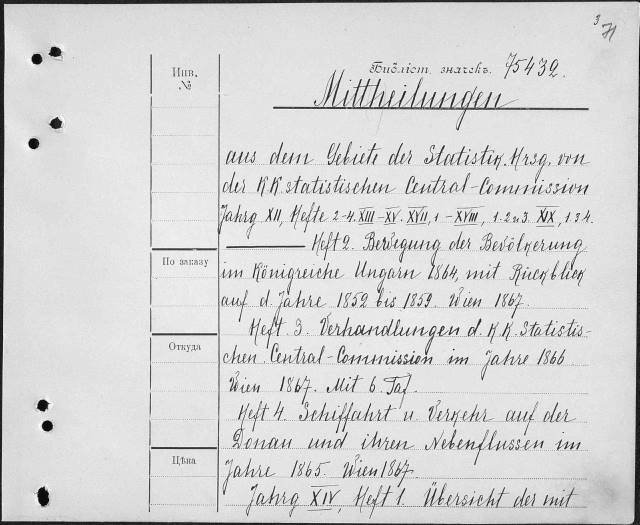 3
Инв.
№
Библіот. значекъ. 75432.
Mittheilungen
aus dem Gebiete der Statistik. Hrsg. von
der K.K. statistischen Central-Commission
Jahrg XII, Hefte 2-4. XIII-XV. XVII, 1-XVIII, 1. 2 u 3. XIX, 1 3 4.
Heft 2. Bewegung der Bevölkerung
По заказу
im Königreiche Ungarn 1864, mit Rückblick
auf d. Jahre 1852 bis 1859. Wien 1867.
Heft 3. Verhandlungen d. K.K. Statistis-
Откуда
chen Central-Commission im Jahre 1866
Wien 1867. Mit 6. Taf.
Heft 4. Schiffahrt u. Verkehr auf der
Donau und ihren Nebenflussen im
Цѣна
Jahre 1865. Wien 1867.
Jahrg XIV, Heft 1. Übersicht der mit